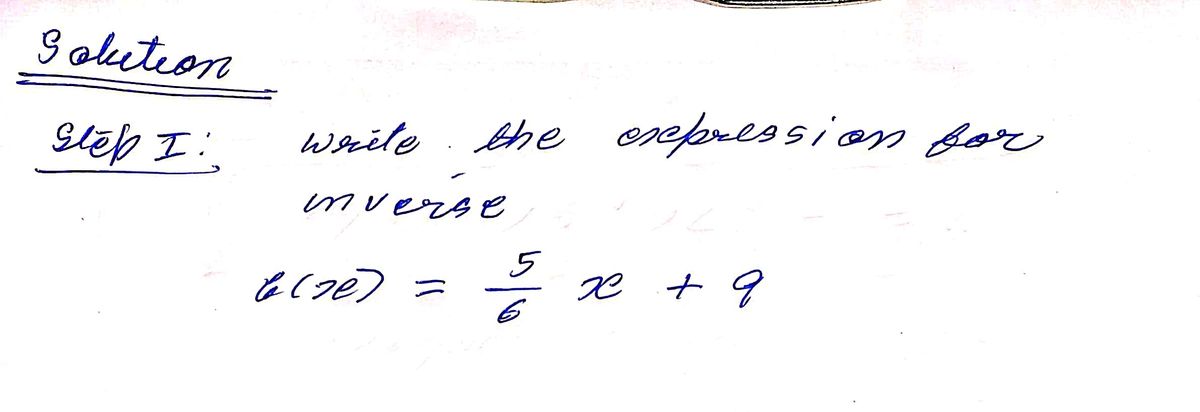 Solution
Step I: write the expression for
inverse
f(x) = 5/6 x + 9